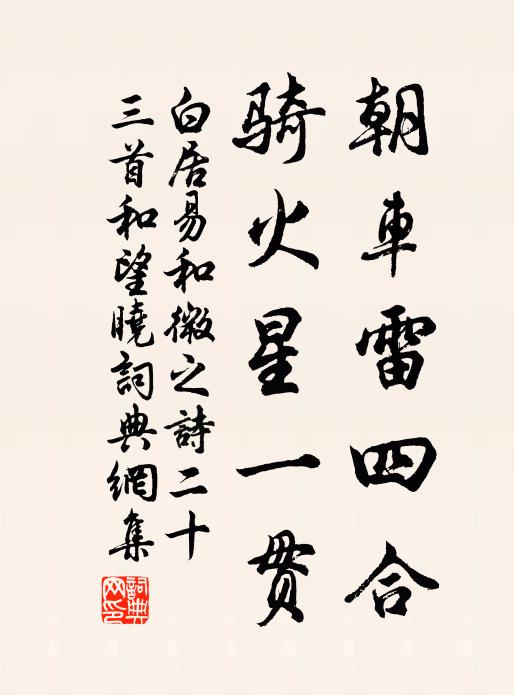 朝車雷四合
騎火星一貫
白居易和微之詩二十
三首和望曉詞典網集
詞典網印